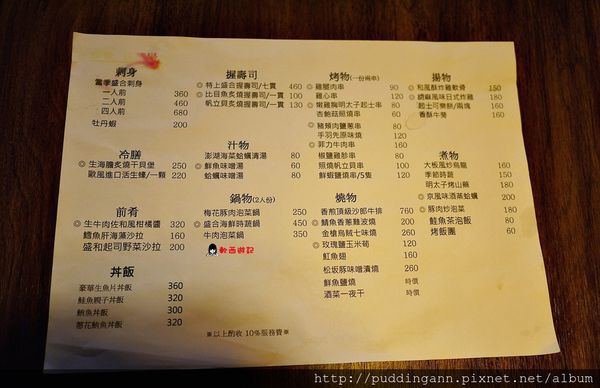 刺身
當季盛合刺身
一人前 360
二人前 460
四人前 680
牡丹蝦 200
冷膳
◎生海膽炙燒干貝堡 250
歐風進口活生蠔/一顆 220
前肴
◎生牛肉佐和風柑橘醬 320
鱈魚肝海藻沙拉 160
盛和起司野菜沙拉 200
丼飯
豪華生魚片丼飯 360
鮭魚親子丼飯 320
鮪魚丼飯 300
蔥花鮪魚丼飯 320
握壽司
◎特上盛合握壽司/七貫 460
◎比目魚炙燒握壽司/一貫 100
帆立貝炙燒握壽司/一貫 130
汁物
澎湖海菜蛤蠣清湯 80
鮮魚味噌湯 80
蛤蠣味噌湯 80
鍋物(2人份)
梅花豚肉泡菜鍋 250
◎盛合海鮮時蔬鍋 450
牛肉泡菜鍋 350
軟西遊記
烤物(一份兩串)
◎雞腿肉串 90
◎雞心串 80
◎嫩雞胸明太子起士串 80
杏鮑菇照燒串 80
◎豬頰肉鹽蔥串 80
手羽先原味燒
◎菲力牛肉串
椒鹽雞胗串 80
照燒帆立貝串 180
鮮蝦鹽燒串/5隻 120
燒物
◎香煎頂級沙郎牛排 760
◎鯖魚香蔥雞波燒 200
◎金槍烏賊七味燒
◎玫瑰鹽玉米筍
魟魚翅 160
松坂豚味噌漬燒 260
鮮魚鹽燒 時價
酒菜一夜干 時價
揚物
◎和風酥炸雞軟骨 150
◎胡麻風味日式炸雞 160
起士可樂餅/兩塊 160
◎香酥牛蒡 160
煮物
大板風炒烏龍 160
季節時蔬 150
明太子烤山藥 180
◎京風味酒蒸蛤蠣 220
◎豚肉炒泡菜 180
鮭魚茶泡飯 80
烤飯團 60
※以上酌收 10%服務費※
http://puddingann.pixnet.net/album